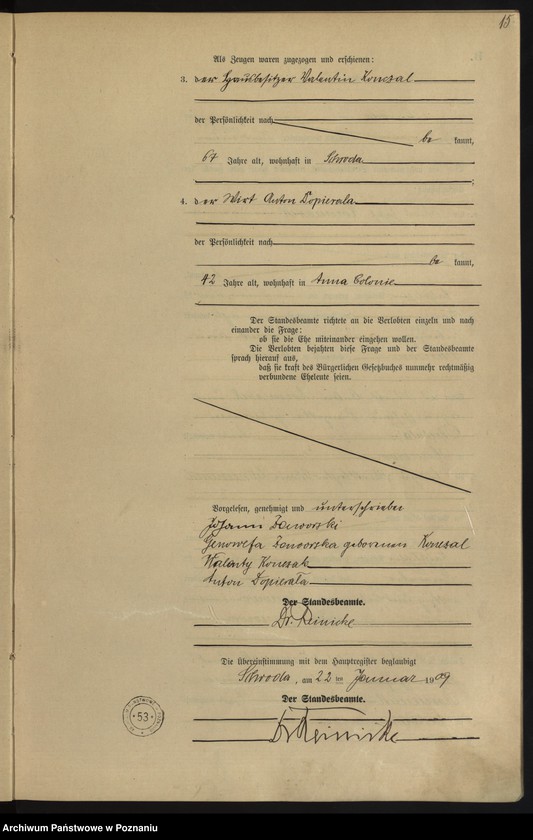 15
Als Zeugen waren zugezogen und erschienen:
3. der Hausbesitzer Valentin Konczal
der Persönlichkeit nach
be kannt,
67 Jahre alt, wohnhaft in Schroda
4. der Wirt Anton Dopierala
der Persönlichkeit nach
be kannt,
42 Jahre alt, wohnhaft in Anna Colonie
Der Standesbeamte richtete an die Verlobten einzeln und nach
einander die Frage:
ob sie die Ehe miteinander eingehen wollen.
Die Verlobten bejahten diese Frage und der Standesbeamte
sprach hierauf aus,
daß sie kraft des Bürgerlichen Gesetzbuches nunmehr rechtmäßig
verbundene Eheleute seien.
Vorgelesen, genehmigt und unterschrieben
Johann Jaworski
Genowefa Jaworska geborenen Konczal
Walenty Konczak
Anton Dopierała
Der Standesbeamte.
Dr. Reinicke
Die Übereinstimmung mit dem Hauptregister beglaubigt
Schroda, am 22 ten Januar 1909
Der Standesbeamte.
Dr Reinicke
53
Archiwum Państwowe w Poznaniu